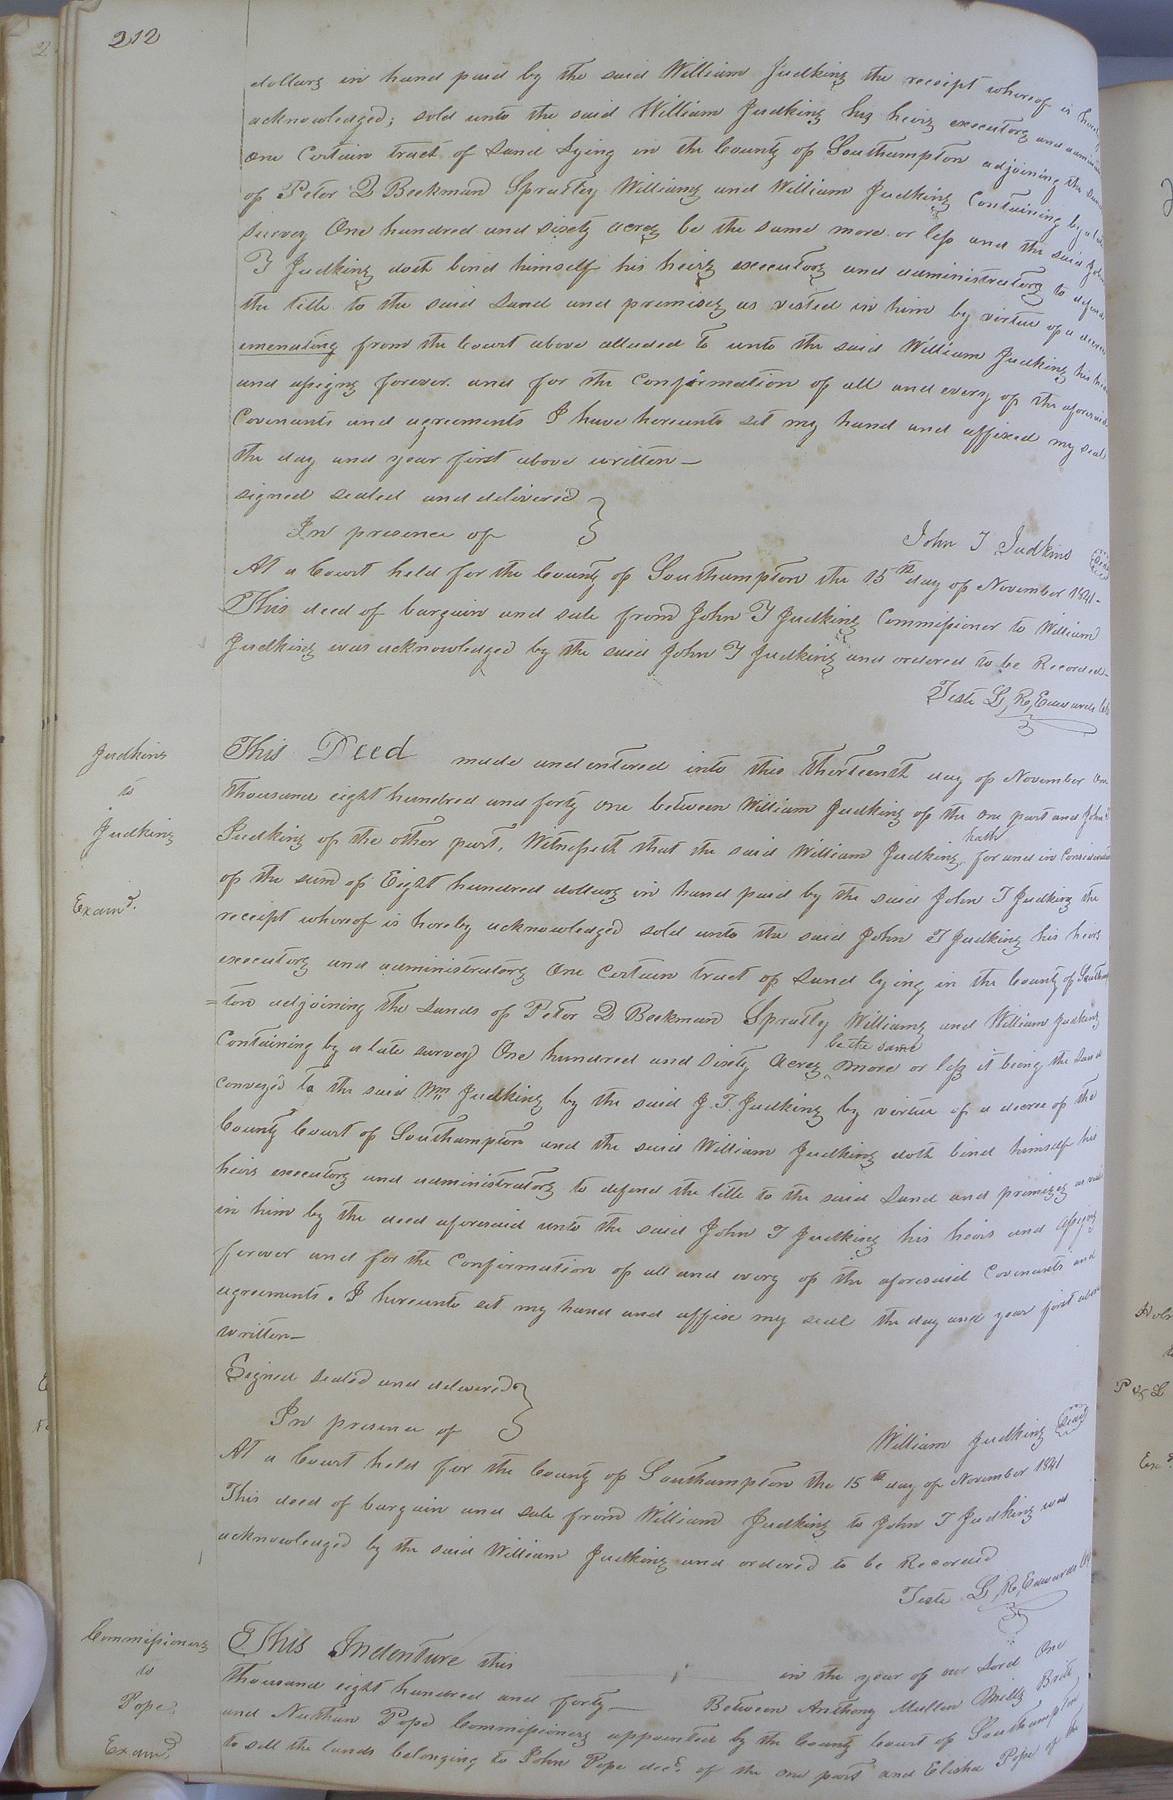 212
dollars in hand paid by the said William Judkins the receipt whereof is
acknowledged; sold unto the said William Judkins his heirs executors and
one Certain tract of Land Lying in the County of Southampton adjoining the
of Peter D Beekman Spratley Williams and William Judkins Containing by a
survey One hundred and sixty acres be the same more or less and the said
T Judkins doth bind himself his heirs executors and administrators to defend
the title to the said Land and premises as vested in him by virtue of a decree
emenating from the Court above alluded to unto the said William Judkins his heirs
and assigns forever. and for the Confirmation of all and every of the aforesaid
Covenants and agreements I have hereunto set my hand and affixed my seal
the day and year first above written —
signed sealed and delivered
In presence of
John T Judkins Seal
At a Court held for the County of Southampton the 15th day of November 1841 -
This deed of bargain and sale from John T Judkins Commissioner to William
Judkins was acknowledged by the said John T Judkins and ordered to be Recorded -
Teste L, R, Edwards
Judkins
to
Judkins
Examd.
This Deed made and entered into this thirteenth day of November One
thousand eight hundred and forty one between William Judkins of the one part and John
Judkins of the other part, Witnesseth that the said William Judkins hath for and in Consideration
of the sum of Eight hundred dollars in hand paid by the said John T Judkins the
receipt whereof is hereby acknowledged sold unto the said John T Judkins his heirs
executors and administrators One Certain tract of Land lying in the County of
=ton adjoining the Lands of Peter D Beekman Spratley Williams and William Judkins
Containing by a late survey One hundred and Sixty Acres be the same more or less it being the Land
conveyed to the said Wm Judkins by the said J. T. Judkins by virtue of a decree of the
County Court of Southampton and the said William Judkins doth bind himself his
heirs executors and administrators to defend the title to the said Land and premises as
in him by the deed aforesaid unto the said John T Judkins his heirs and assigns
forever and for the Confirmation of all and every of the aforesaid Covenants and
agreements. I hereunto set my hand and affix my seal the day and year first above
written —
Signed sealed and delivered
In presence of
William Judkins Seal
At a Court held for the County of Southampton the 15th day of November 1841
This deed of bargain and sale from William Judkins to John T Judkins was
acknowledged by the said William Judkins and ordered to be Recorded
Teste L, R, Edwards
Commissioners
to
Pope
Examd
This Indenture this in the year of our Lord One
thousand eight hundred and forty — Between Anthony Mullen Mills Britt
and Nathan Pope Commissioners appointed by the County Court of Southampton
to sell the lands belonging to John Pope decd. of the one part and Elisha Pope of the